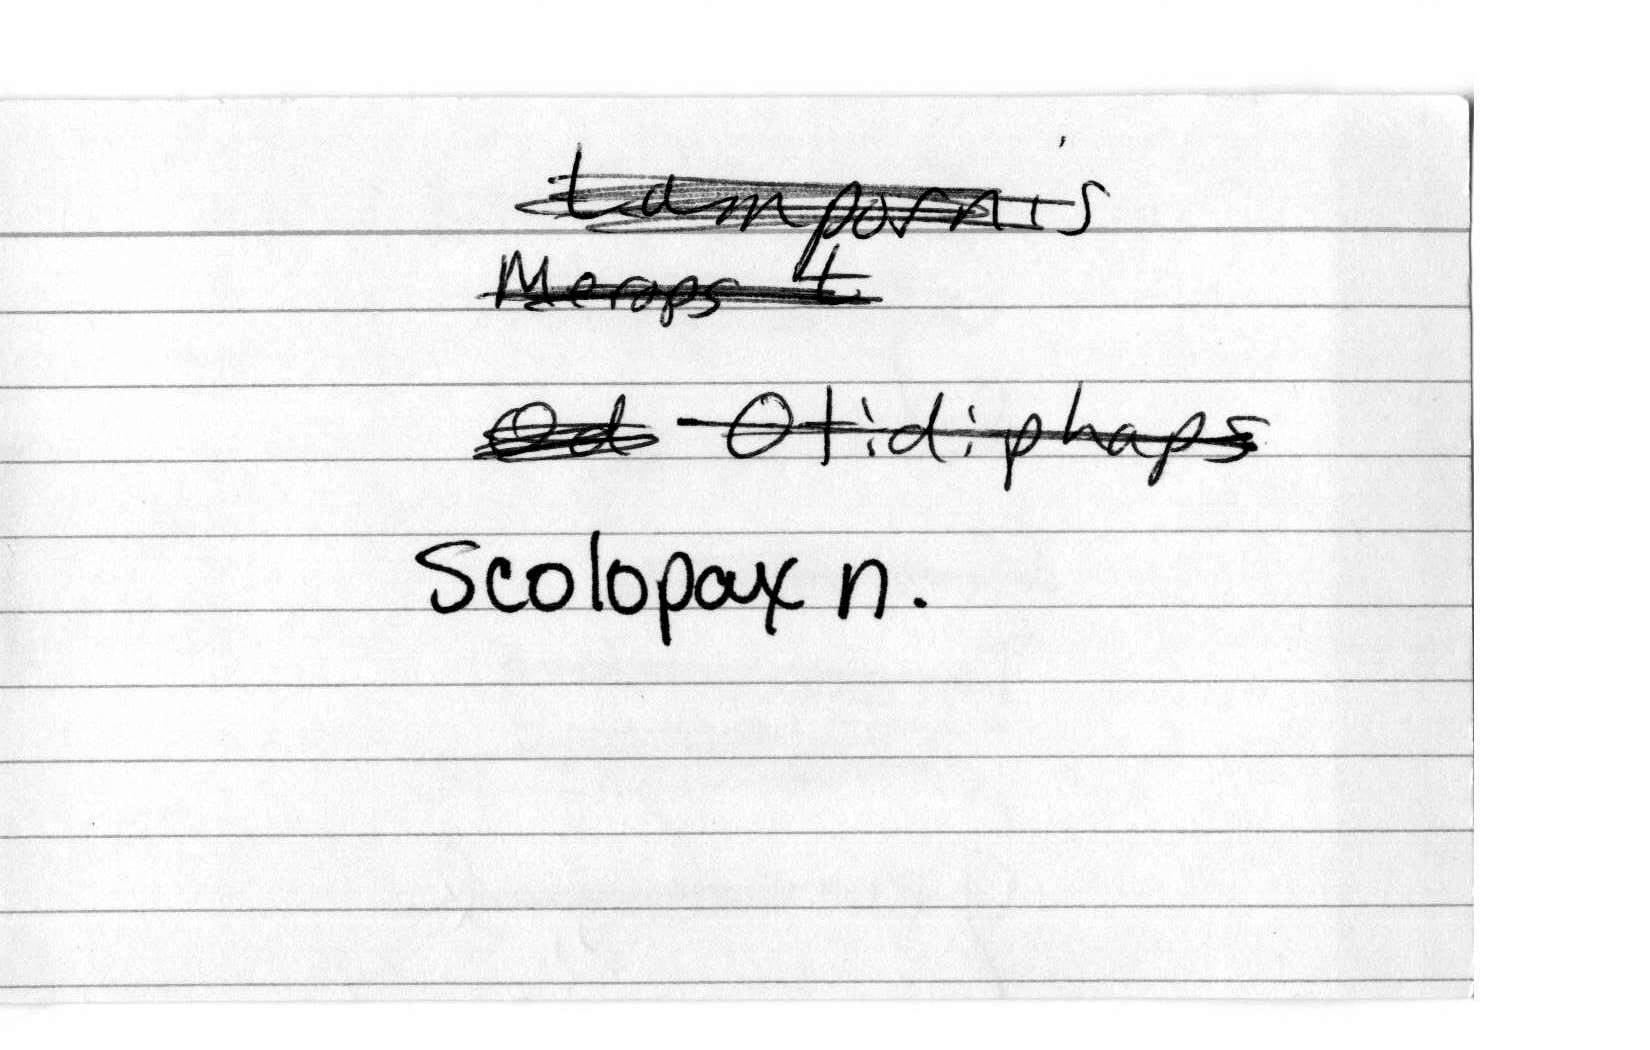 Lampornis
Merops t
Od Otidiphaps
Scolopax n.